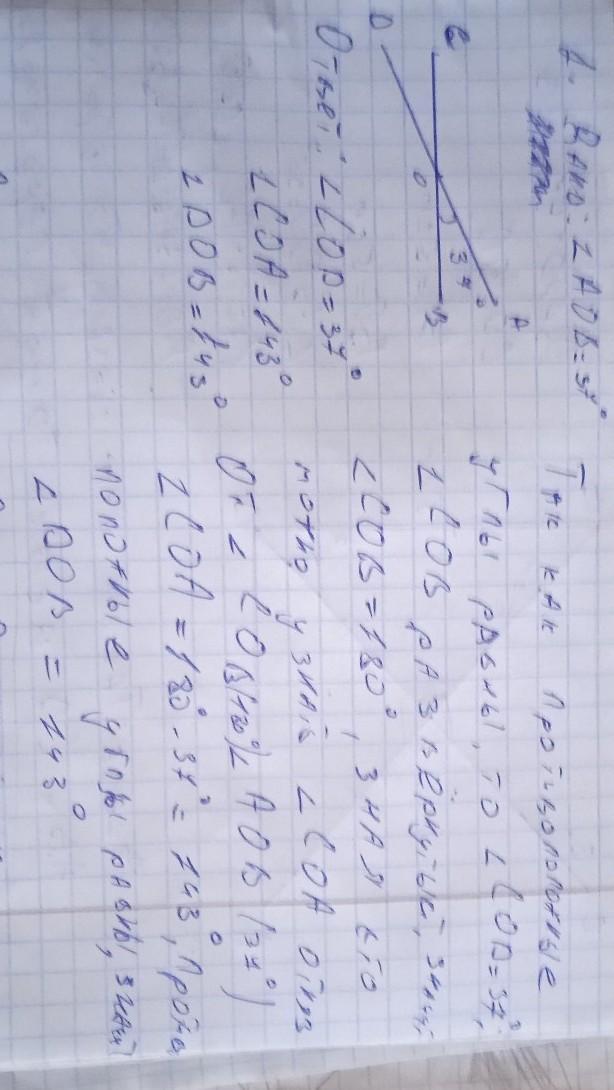 1. Дано: ∠AOB=37°
C
D
O
37°
A
B
Ответ: ∠COD=37°
∠COA=143°
∠DOB=143°
Так как противоположные
углы равны, то ∠COD=37°,
∠COB развёрнутый, значит
∠COB=180°, зная это
можно узнать ∠COA отняв
От ∠COB(180°) ∠AOB (37°)
∠COA=180°-37°=143°, Проти
положные углы равны, значит
∠DOB=143°